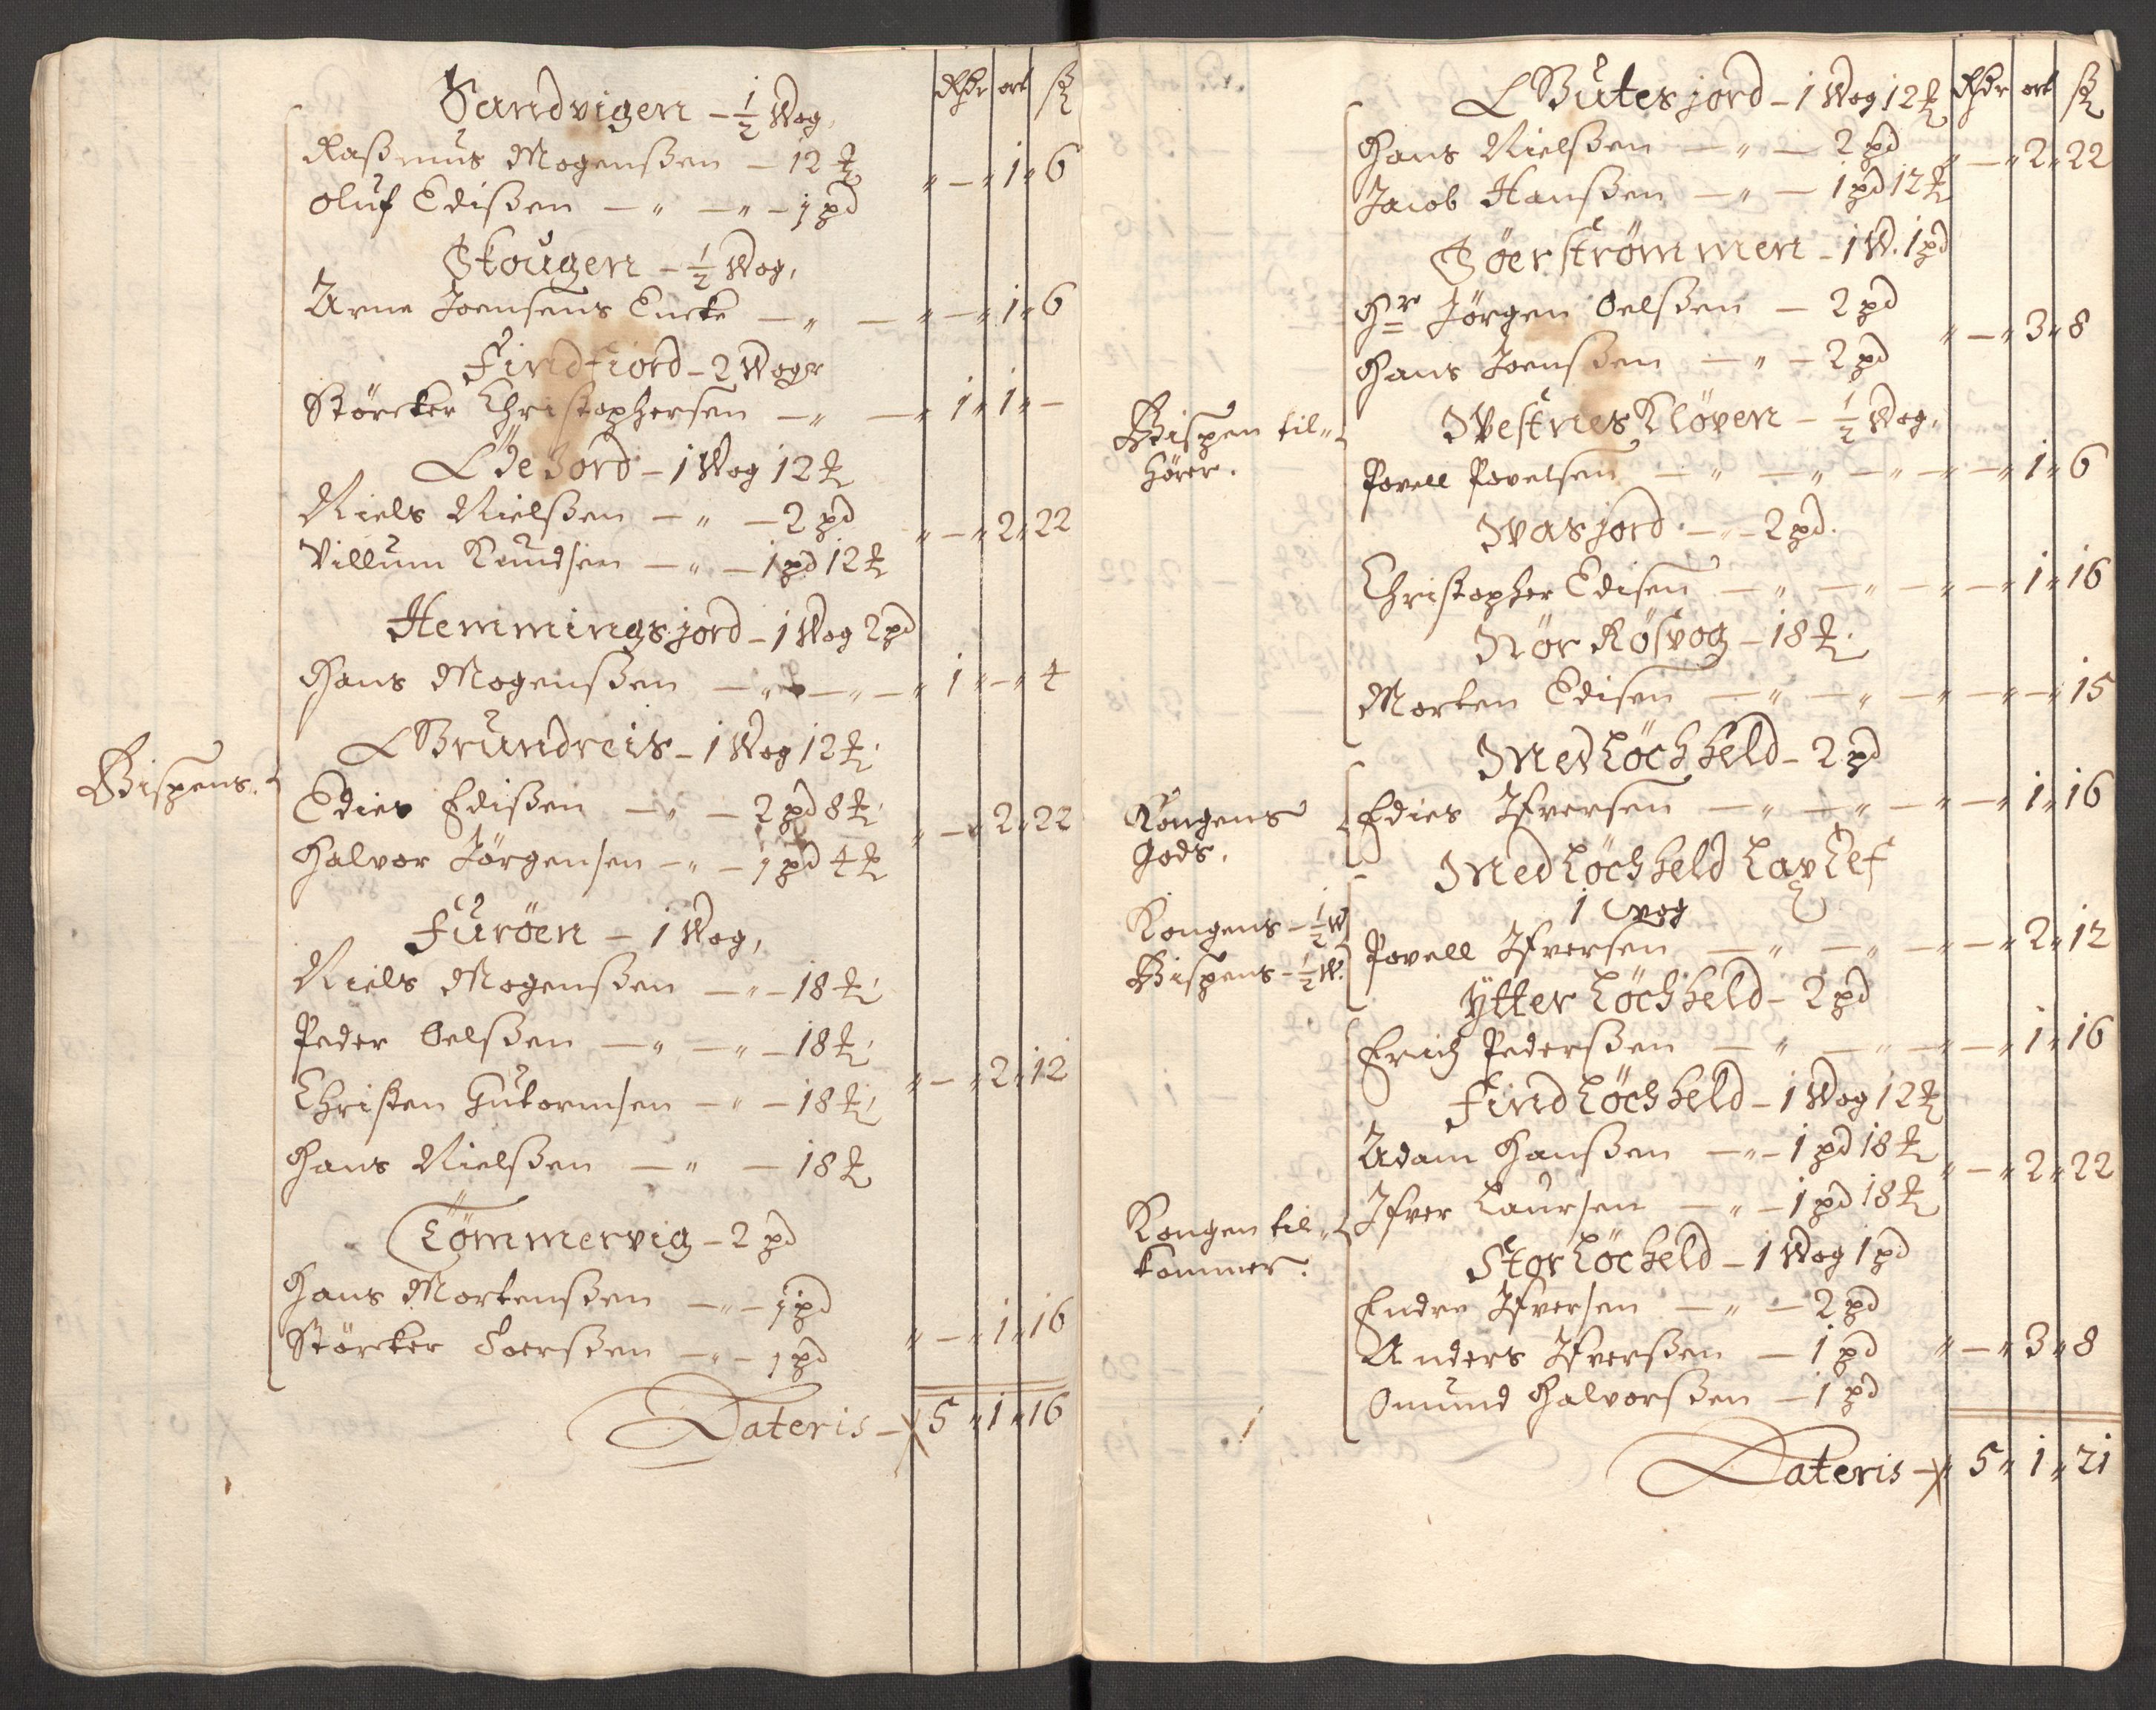 Rdr ort ß
Sandvigen - ½ Wog,
Rasmus Mogenßen - 12 ℔
„ - „ 1 „ 6
Oluf Edißen - „ - „ - 1 pd
Skougen - ½ Wog,
Arne Joensens Encke - „ - „ - „ 1 „ 6
Findfiord - 2 Woge
Størcker Christophersen - „ - „ 1 „ 1 „ -
Ödejord - 1 Wog 12 ℔
Niels Nielßen - „ - 2 pd
„ - „ 2 „ 22
Villum Knudsen - „ - 1 pd 12 ℔
Hemmingsjord - 1 Wog 2 pd
Hans Mogenßen - „ - „ - „ 1 „ - „ 4
Bispens.
Brundreis - 1 Wog 12 ℔
Edies Edißen - „ - 2 pd 8 ℔
„ - „ 2 „ 22
Halvor Jörgensen - „ - 1 pd 4 ℔
Furöen - 1 Wog,
Niels Mogenßen - „ - 18 ℔
Peder Oelßen - „ - „ - 18 ℔
„ - „ 2 „ 12
Christen Gutormsen - „ - 18 ℔
Hans Nielßen - „ - 18 ℔
Tömmervig - 2 pd
Hans Mortenßen - „ - 1 pd
„ - „ 1 „ 16
Störcker Toerßen - „ - 1 pd
Lateris - 5 „ 1 „ 16
Rdr ort ß
Butesjord - 1 Wog 12 ℔
Hans Nielßen - „ - 2 pd
„ - „ 2 „ 22
Jacob Hanßen - „ - 1 pd 12 ℔
Söerströmmen - 1 W. 1 pd
Hr Jörgen Oelßen - 2 pd
„ - „ 3 „ 8
Hans Joenßen - „ - 2 pd
Bispen til-
hörer.
Westnes Klöven - ½ Wog,
Povell Povelsen - „ - „ - „ - „ 1 „ 6
Wasjord - „ - 2 pd.
Christopher Edisen - „ - „ - „ - „ 1 „ 16
Nör Rösvog - 18 ℔
Morten Edisen - „ - „ - „ - „ - „ 15
Kongens
Gods.
Med Löchheld - 2 pd
Edies Ifversen - „ - „ - „ - „ 1 „ 16
Med Löchheld Lav Lef
1 vog
Kongens - ½ W
Bispens - ½ W.
Povell Ifversen - „ - „ - „ - „ 2 „ 12
Ytter Löchheld - 2 pd
Erich Pederßen - „ - „ - „ - „ 1 „ 16
Find Löchheld - 1 Wog 12 ℔
Adam Hanßen - „ - 1 pd 18 ℔
„ - „ 2 „ 22
Ifver Laursen - „ - 1 pd 18 ℔
Kongen til-
kommer.
Stor Löcheld - 1 Wog 1 pd
Endre Ifversen - „ - 2 pd
Anders Ifverßen - 1 pd „ - „ 3 „ 8
Omund Halvorßen - 1 pd
Lateris - „ 5 „ 1 „ 21